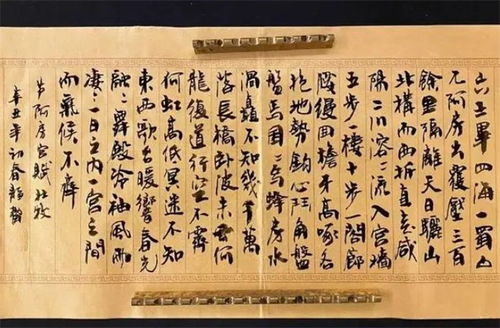 六王畢四海一蜀山
兀阿房出覆壓三百
餘里隔離天日驪山
北構而西折直走咸
陽二川溶〻流入宮墻
五步一樓十步一閣廊
腰縵回檐牙高啄各
抱地勢鈎心鬥角盤
盤焉囷〻焉蜂房水
渦矗不知幾千萬
落長橋卧波未雲何
龍復道行空不霽
何虹高低冥迷不知
東西歌台暖響春光
融〻舞殿冷袖風雨
凄〻一日之内一宮之間
而氣候不齊
節阿房宮賦杜牧
辛丑年初春